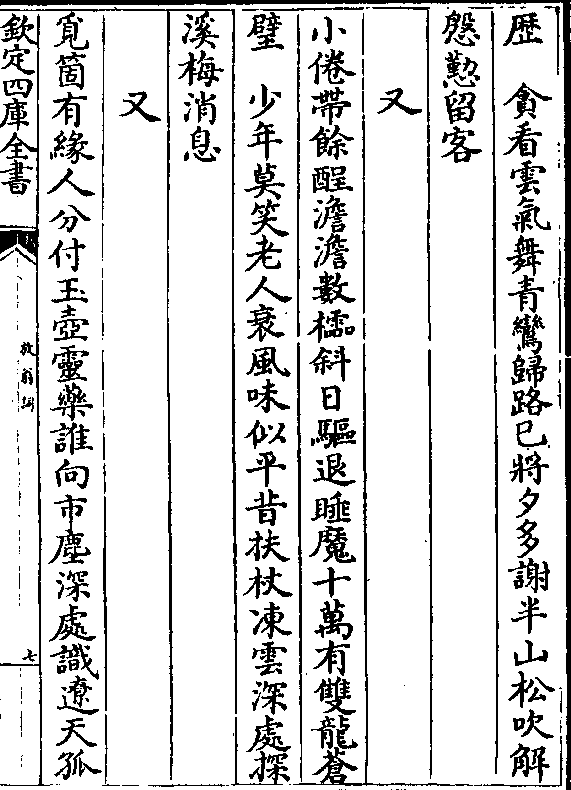 歴　貪看雲氣舞青鸞歸路已將夕多謝半山松吹解
慇懃留客
又
小倦帶餘酲澹澹數櫺斜日驅退睡魔十萬有雙龍蒼
璧　少年莫笑老人衰風味似平昔扶杖凍雲深處探
溪梅消息
又
覓箇有緣人分付玉壺靈藥誰向市塵深處識遼天孤
欽定四庫全書
放翁詞
七